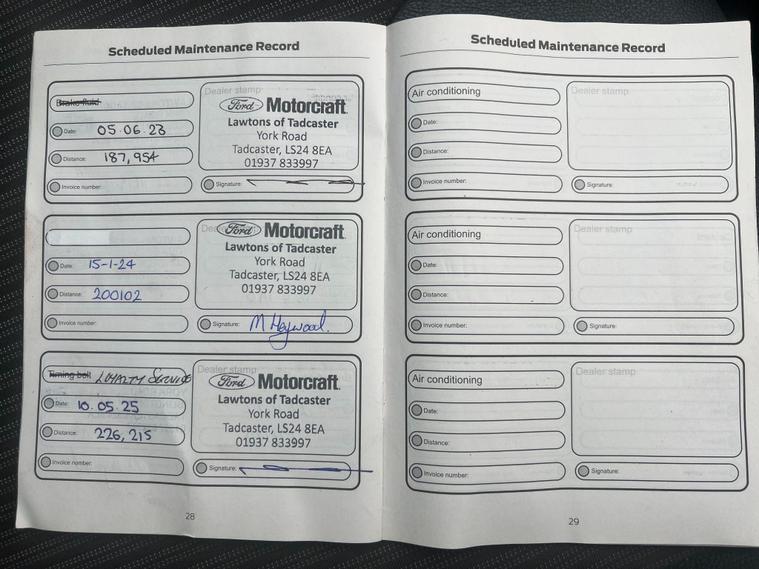 Scheduled Maintenance Record
Brake fluid
Date: 05.06.23
Distance: 187,954
Invoice number:
Dealer stamp
Ford Motorcraft
Lawtons of Tadcaster
York Road
Tadcaster, LS24 8EA
01937 833997
Signature:
Date: 15-1-24
Distance: 200102
Invoice number:
Ford Motorcraft
Lawtons of Tadcaster
York Road
Tadcaster, LS24 8EA
01937 833997
Signature: M Heywood.
Timing belt LOYALTY SERVICE
Date: 10.05.25
Distance: 226,215
Invoice number:
Dealer stamp
Ford Motorcraft
Lawtons of Tadcaster
York Road
Tadcaster, LS24 8EA
01937 833997
Signature:
28
Scheduled Maintenance Record
Air conditioning
Date:
Distance:
Invoice number:
Dealer stamp
Signature:
Air conditioning
Date:
Distance:
Invoice number:
Dealer stamp
Signature:
Air conditioning
Date:
Distance:
Invoice number:
Dealer stamp
Signature:
29